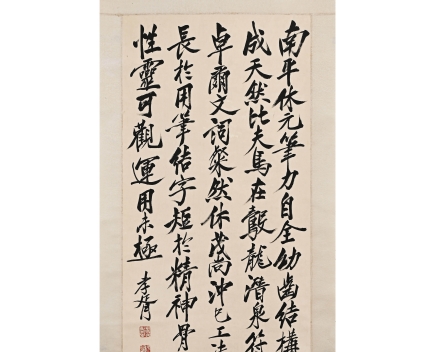 南平休元筆力自全幼齒結構
成天然比夫馬在鷇龍潛泉符
卓爾文詞粲然休茂尚沖已工法
長於用筆結字短於精神骨
性靈可觀運用未極
李胥